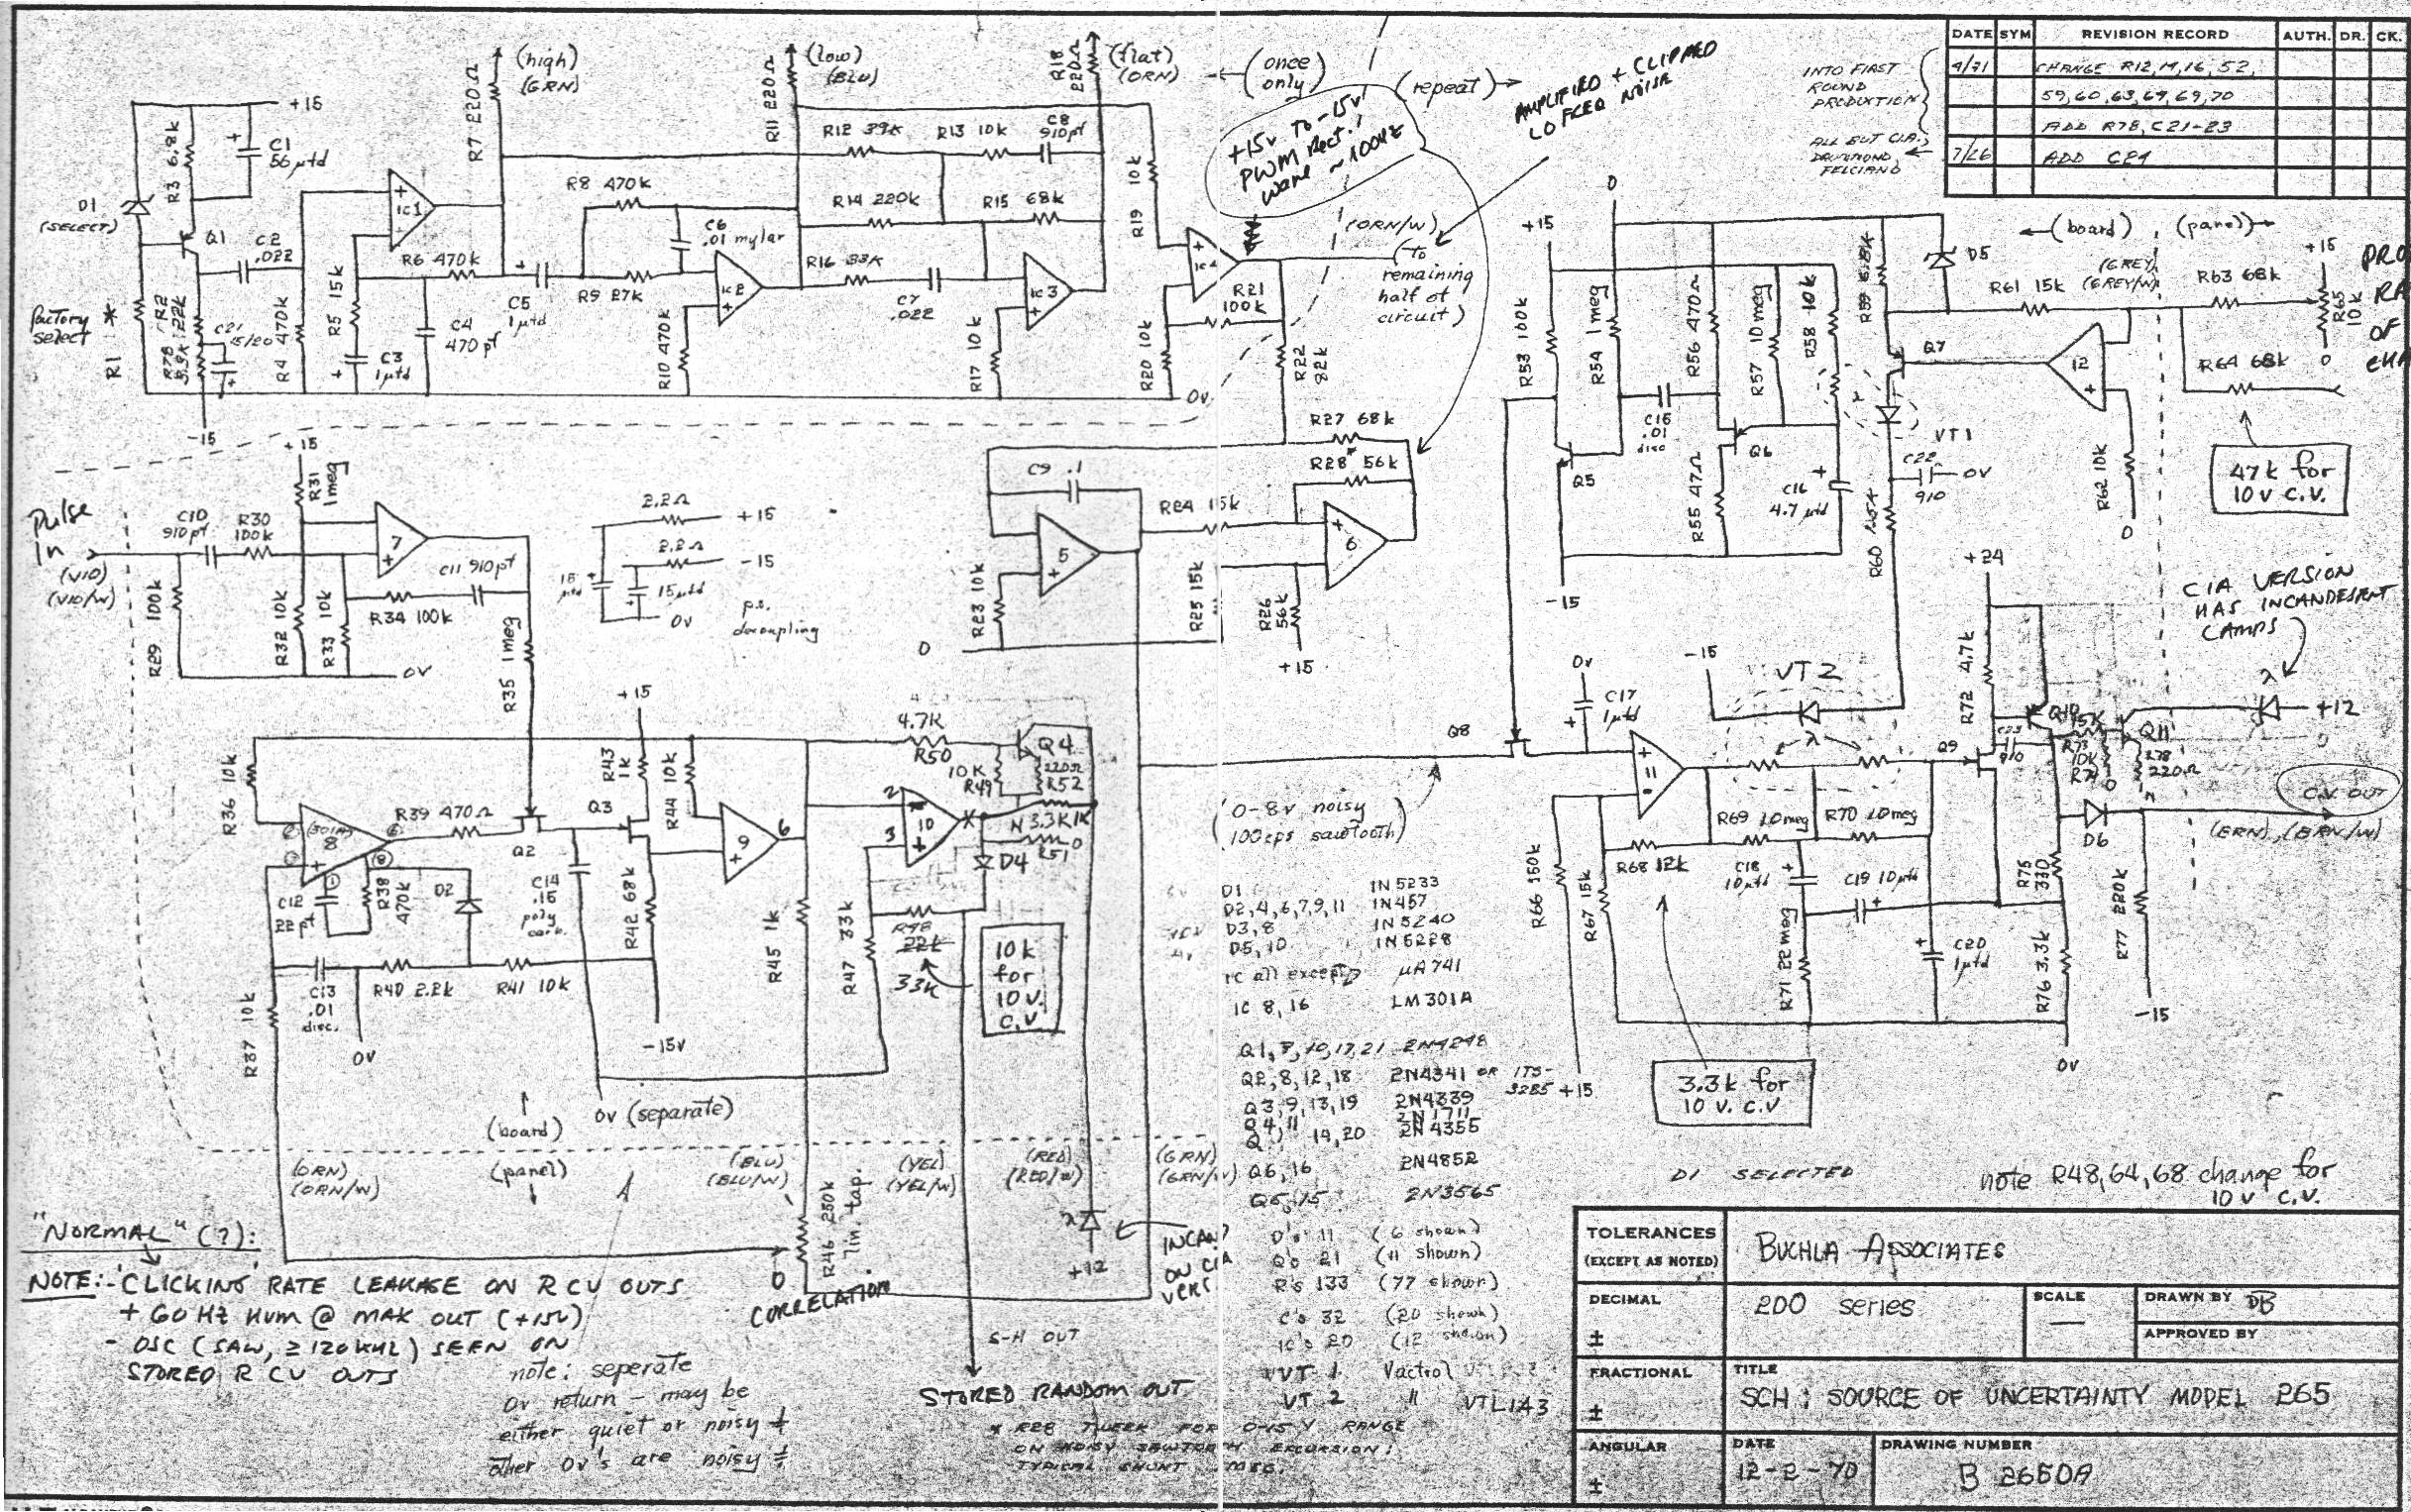 DATE SYM REVISION RECORD AUTH. DR. CK.
4/71 CHANGE R12,14,16,52,
59,60,63,64,69,70
ADD R78, C21-23
7/26 ADD C24
INTO FIRST
ROUND
PRODUCTION
ALL BUT C.I.A.,
DRUMMOND,
FELCIANO
(high)
(GRN)
(low)
(BLU)
(flat)
(ORN)
(once
only)
(repeat)
+15v TO -15v
PWM Rect.!
wave ~ 100HZ
AMPLIFIED + CLIPPED
LO FREQ NOISE
+15
R3 6.8k
C1
56 µfd
D1
(SELECT)
Q1
C2
.022
R7 220Ω
R11 220Ω
R18
220Ω
R12 39k
R13 10k
C8
910pf
R8 470k
R14 220k
R15 68k
C6
.01 mylar
IC1
R6 470k
R5 15k
R4 470k
C5
1µfd
R9 27k
R16 33K
C7
.022
IC2
IC3
IC4
R19 10k
R21
100k
R20 10k
R17 10k
R10 470k
C4
470 pf
C3
1µfd
Factory
select *
R1
R2 22k
R78 3.9k
C21
15/20
-15
0v
R22
82k
(ORN/W)
(to
remaining
half of
circuit)
+15
R53 100k
0
R54 1 meg
R56 470Ω
R57 10 meg
R58 10k
R59 6.8k
D5
(board) (panel)
(GREY)
(GREY/W)
R61 15k
R63 68k
+15
R65
10k
0
R64 68k
PRO
RA
OF
CHA
Q7
12
VT1
C22
910
0v
R62 10k
0
47k for
10 v C.V.
C15
.01
disc
Q5
Q6
R55 47Ω
C16
4.7 µfd
R60
-15
Pulse
In
(VIO)
(VIO/W)
C10
910pf
R30
100k
+15
R31
1meg
7
R29 100k
R32 10k
R33 10k
R34 100k
C11 910pf
0v
R35 1meg
2.2Ω
+15
2.2Ω
-15
15
µfd
15µfd
0v
p.s.
decoupling
C9 .1
5
R23 10k
0
R24 15k
R25 15k
R27 68k
R28* 56k
6
R26
56k
+15
+24
CIA VERSION
HAS INCANDESENT
LAMPS
R72 4.7k
Q10
15K
Q11
+12
C23
910
R73
10K
R74
R78
220Ω
Q9
D6
C.V. OUT
(BRN), (BRN/W)
R75
330
R76 3.3k
R77 220k
-15
0v
Q8
0v
C17
1µfd
-15
VT 2
λ
11
R69 10meg
R70 10meg
R68 12k
C18
10µfd
C19 10µfd
R66 150k
R67 15k
R71 22meg
C20
1µfd
+15
3.3k for
10 v. C.V
(0-8v noisy
100cps sawtooth)
R36 10k
(301A)
8
R39 470Ω
Q2
+15
R43
1k
Q3
R44 10k
9
6
4.7K
R50
10K
R49
Q4
220Ω
R52
2
3
10
3.3K 1K
R51
0
D4
C12
22 pf
R38
470k
D2
C14
.15
poly
carb.
R42 68k
R45 1k
R47 33k
R48
22k
33K
10k
for
10 v.
C.V
C13
.01
disc.
R40 2.2k
R41 10k
R37 10k
0v
-15v
0v (separate)
(board)
(panel)
(ORN)
(ORN/W)
(BLU)
(BLU/W)
(YEL)
(YEL/W)
(RED)
(RED/W)
(GRN)
(GRN/W)
R46 250k
lin. tap.
0
CORRELATION
+12
S-H OUT
STORED RANDOM OUT
"NORMAL" (?):
NOTE: - 'CLICKING' RATE LEAKAGE ON R CV OUTS
+ 60 HZ HUM @ MAX OUT (+15V)
- OSC (SAW, ≥ 120 kHZ) SEEN ON
STORED R CV OUTS
note: seperate
0v return - may be
either quiet or noisy
other 0v's are noisy
* R28 TWEEK FOR 0-15 V RANGE
ON NOISY SAWTOOTH EXCURSION;
TYPICAL SHUNT
D1 1N5233
D2,4,6,7,9,11 1N457
D3,8 1N5240
D5,10 1N5228
IC all except µA741
IC 8,16 LM301A
Q1,7,10,17,21 2N4248
Q2,8,12,18 2N4341 OR ITS-
3285
Q3,9,13,19 2N4339
Q4,11 2N1711
14,20 2N4355
Q6,16 2N4852
Q5,15 2N3565
D's 11 (6 shown)
Q's 21 (11 shown)
R's 133 (77 shown)
C's 32 (20 shown)
IC's 20 (12 shown)
VT 1 Vactrol
VT 2 " VTL143
D1 SELECTED
note R48,64,68 change for
10 v C.V.
TOLERANCES
(EXCEPT AS NOTED)
BUCHLA ASSOCIATES
DECIMAL
±
200 series
SCALE
—
DRAWN BY DB
APPROVED BY
FRACTIONAL
±
TITLE
SCH: SOURCE OF UNCERTAINTY MODEL 265
ANGULAR
±
DATE
12-2-70
DRAWING NUMBER
B 2650A